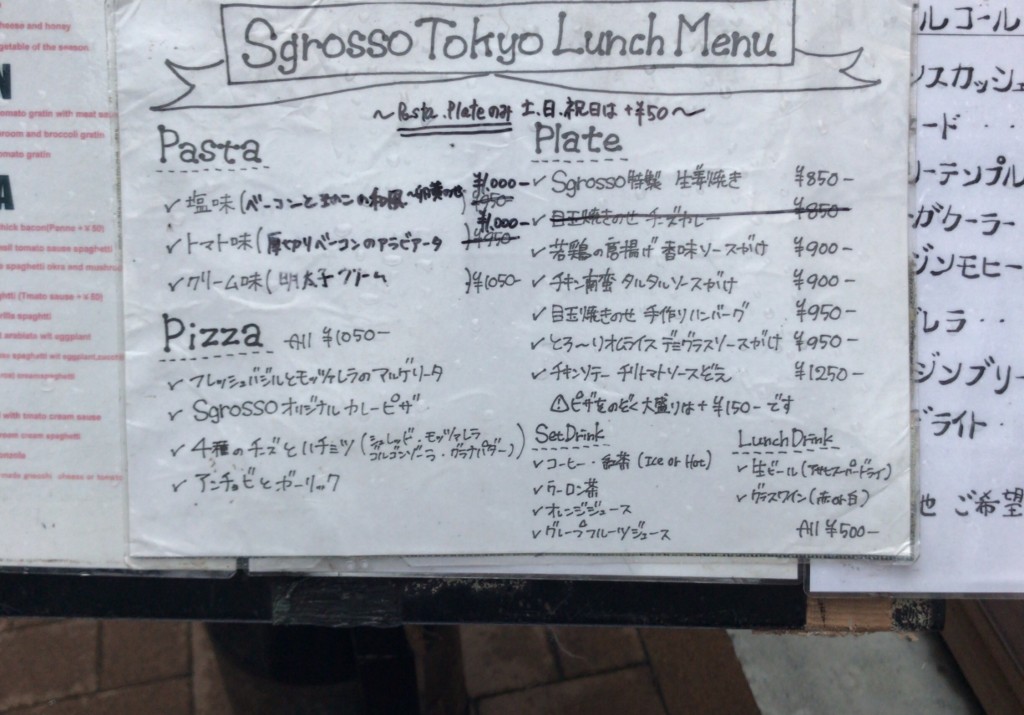 Sgrosso Tokyo Lunch Menu
〜Pasta.Plateのみ 土.日.祝日は+¥50〜
Pasta
¥1,000-
✓塩味(ベーコンときのこの和風〜卵黄のせ) ¥950-
¥1,000-
✓トマト味(厚切りベーコンのアラビアータ ¥950-
✓クリーム味(明太子クリーム )¥1050-
Pizza All ¥1050-
✓フレッシュバジルとモッツァレラのマルゲリータ
✓Sgrossoオリジナルカレーピザ
✓4種のチーズとハチミツ(シュレッド・モッツァレラ
ゴルゴンゾーラ・グラナパダーノ)
✓アンチョビとガーリック
Plate
✓Sgrosso特製 生姜焼き ¥850-
✓目玉焼きのせ チーズカレー ¥850-
✓若鶏の唐揚げ 香味ソースがけ ¥900-
✓チキン南蛮 タルタルソースがけ ¥900-
✓目玉焼きのせ 手作りハンバーグ ¥950-
✓とろ〜りオムライス デミグラスソースがけ ¥950-
✓チキンソテー チリトマトソース ¥1250-
⚠ピザをのぞく大盛りは+¥150-です
Set Drink
✓コーヒー・紅茶 (Ice or Hot)
✓ウーロン茶
✓オレンジジュース
✓グレープフルーツジュース
Lunch Drink
✓生ビール(アサヒスーパードライ)
✓グラスワイン(赤or白)
All ¥500-
cheese and honey
getable of the season
N
tomato gratin with meat sau
room and broccoli gratin
omato gratin
A
hick bacon(Panna +¥50)
tomato sauce spaghetti
spaghetti okra and mushroo
ghtti (Tmato sauce +¥50)
rilla spaghetti
t arabiato wit eggplant
with tmato cream sauce
ream cream spaghetti
ルコール
ンスカッシュ
ード・・
リーテンプル
ガクーラー
ジンモヒー
レラ・・
ジンブリー
ライト・
他 ご希望